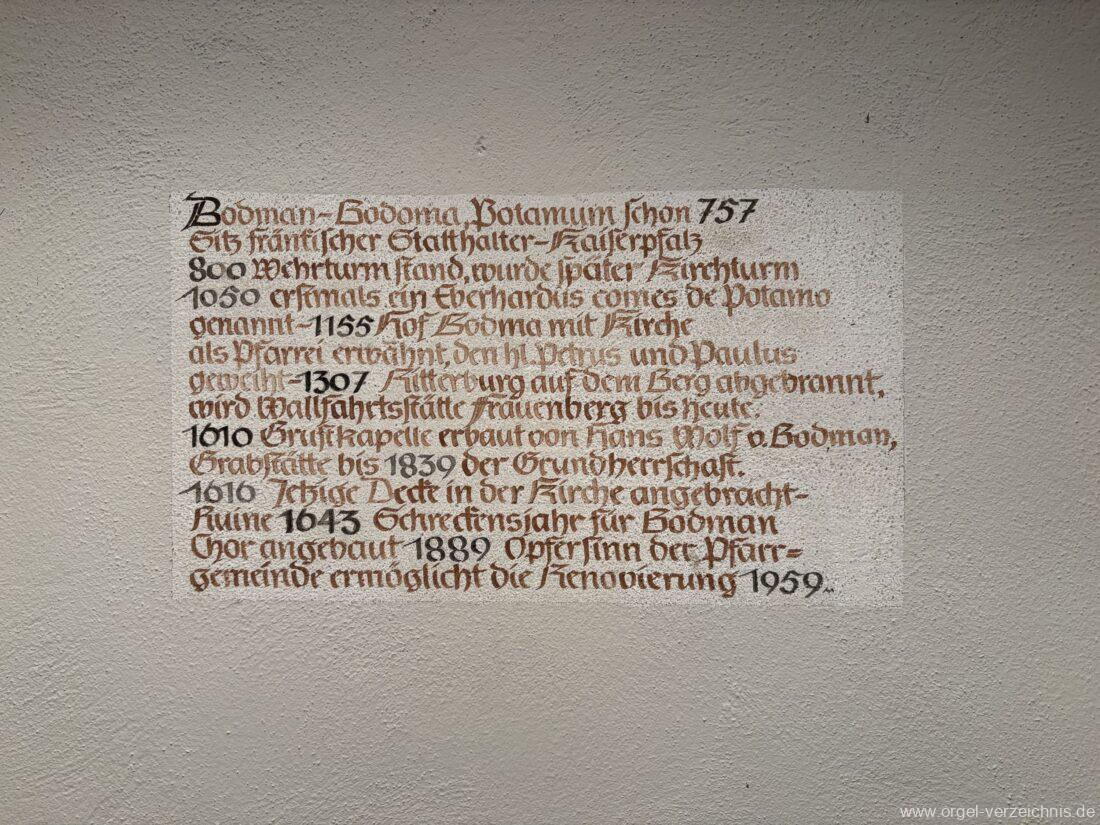 Bodman-Bodoma, Potamum schon 757
Sitz fränkischer Statthalter-Kaiserpfalz
800 Wehrturm stand, wurde später Kirchturm
1050 erstmals ein Eberhardus comes de Potamo
genannt-1155 Hof Bodma mit Kirche
als Pfarrei erwähnt, den hl. Petrus und Paulus
geweiht-1307 Ritterburg auf dem Berg abgebrannt,
wird Wallfahrtsstätte Frauenberg bis heute.
1610 Gruftkapelle erbaut von Hans Wolf v. Bodman,
Grabstätte bis 1839 der Grundherrschaft.
1616 Jetzige Decke in der Kirche angebracht-
Ruine 1643 Schreckensjahr für Bodman
Chor angebaut 1889 Opfersinn der Pfarr=
gemeinde ermöglicht die Renovierung 1959..
www.orgel-verzeichnis.de